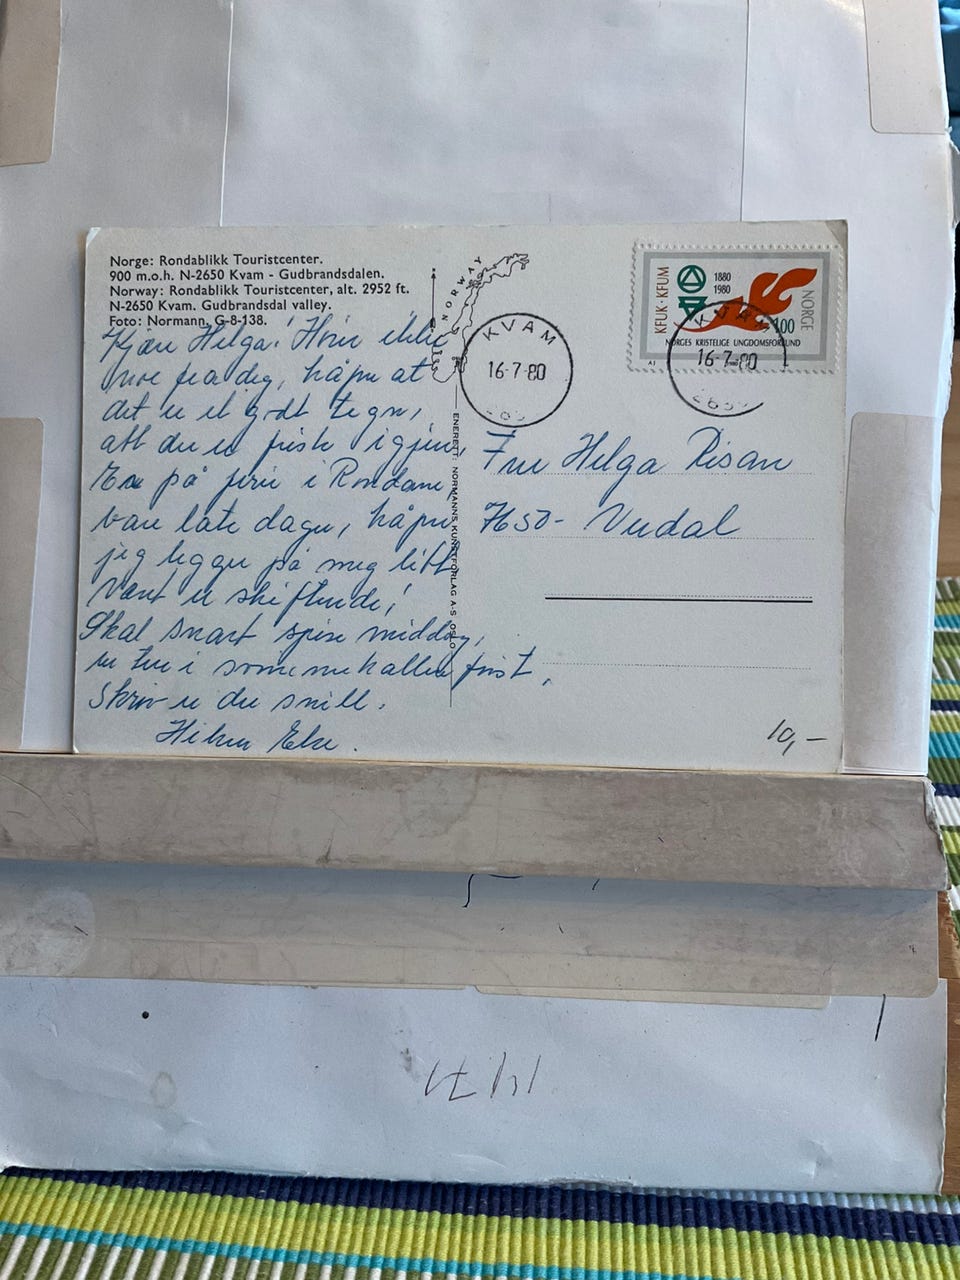 Norge: Rondablikk Touristcenter.
900 m.o.h. N-2650 Kvam - Gudbrandsdalen.
Norway: Rondablikk Touristcenter, alt. 2952 ft.
N-2650 Kvam. Gudbrandsdal valley.
Foto: Normann, G-8-138.
Kjære Helga! Hører ikke
noe fra deg, håper at
det er et godt tegn,
att du er frisk igjen,
Er på ferie i Rondane,
bare late dager, håper
jeg legger på meg litt
Været er skiftende!
Skal snart spise middag,
en tur i svømmehallen først.
Skriv er du snill.
Hilsen Else.
NORWAY
ENERETT: NORMANNS KUNSTFORLAG A-S OSLO
KVAM
16-7-80
KFUK·KFUM
1880
1980
NORGE
100
NORGES KRISTELIGE UNGDOMSFORBUND
KVAM
16-7-80
Fru Helga Risan
7650- Verdal
10,-